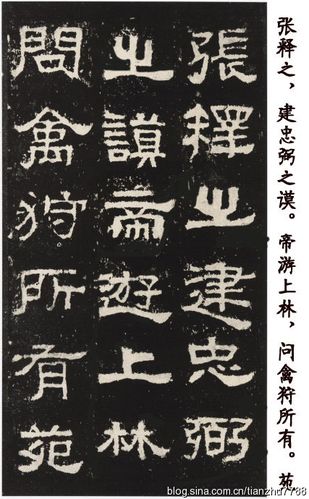 張釋之建忠弼
之謨帝遊上林
問禽狩所有苑
张释之，建忠弼之谟。帝游上林，问禽狩所有。苑
blog.sina.com.cn/tianzhu7788